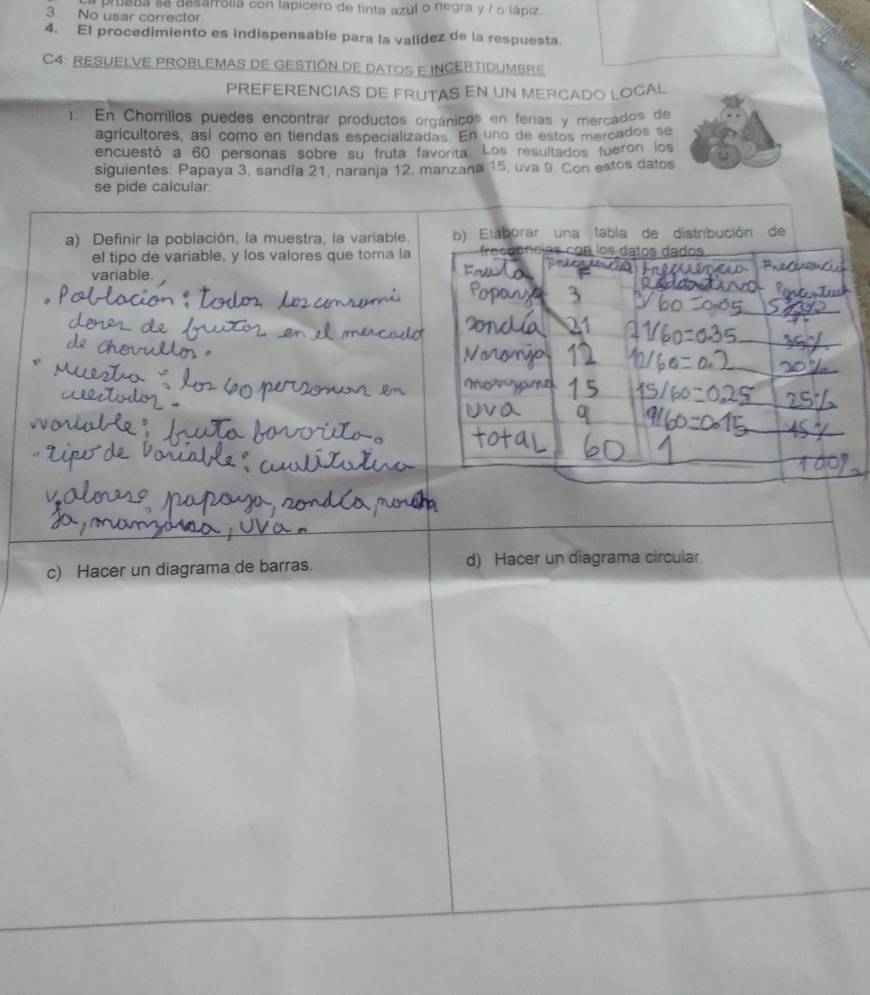 La prueba se desarrolla con lapicero de tinta azul o negra y / o lápiz
3. No usar corrector
4. El procedimiento es indispensable para la validez de la respuesta.
C4: RESUELVE PROBLEMAS DE GESTIÓN DE DATOS E INCERTIDUMBRE
PREFERENCIAS DE FRUTAS EN UN MERCADO LOCAL
1. En Chorrillos puedes encontrar productos orgánicos en ferias y mercados de
agricultores, así como en tiendas especializadas. En uno de estos mercados se
encuestó a 60 personas sobre su fruta favorita. Los resultados fueron los
siguientes: Papaya 3, sandía 21, naranja 12, manzana 15, uva 9. Con estos datos
se pide calcular:
a) Definir la población, la muestra, la variable,
el tipo de variable, y los valores que toma la
variable.
• Población: todos los consumi
dores de frutas en el mercado
de chorrillos.
• Muestra: los 60 personas en
cuestados.
variable: fruta favorita.
• tipo de variable: cualitativa
valores: papaya, sandía, naran
ja, manzana, uva.
b) Elaborar una tabla de distribución de
frecuencias con los datos dados
Fruta Frecuencia F Frecuencia Relativa Frecuencia Porcentual
Papaya 3 3/60=0.05 5%
Sandía 21 21/60=0.35 35%
Naranja 12 12/60=0.2 20%
manzana 15 15/60=0,25 25%
uva 9 9/60=0.15 15%
total 60 1 100%
c) Hacer un diagrama de barras.
d) Hacer un diagrama circular.